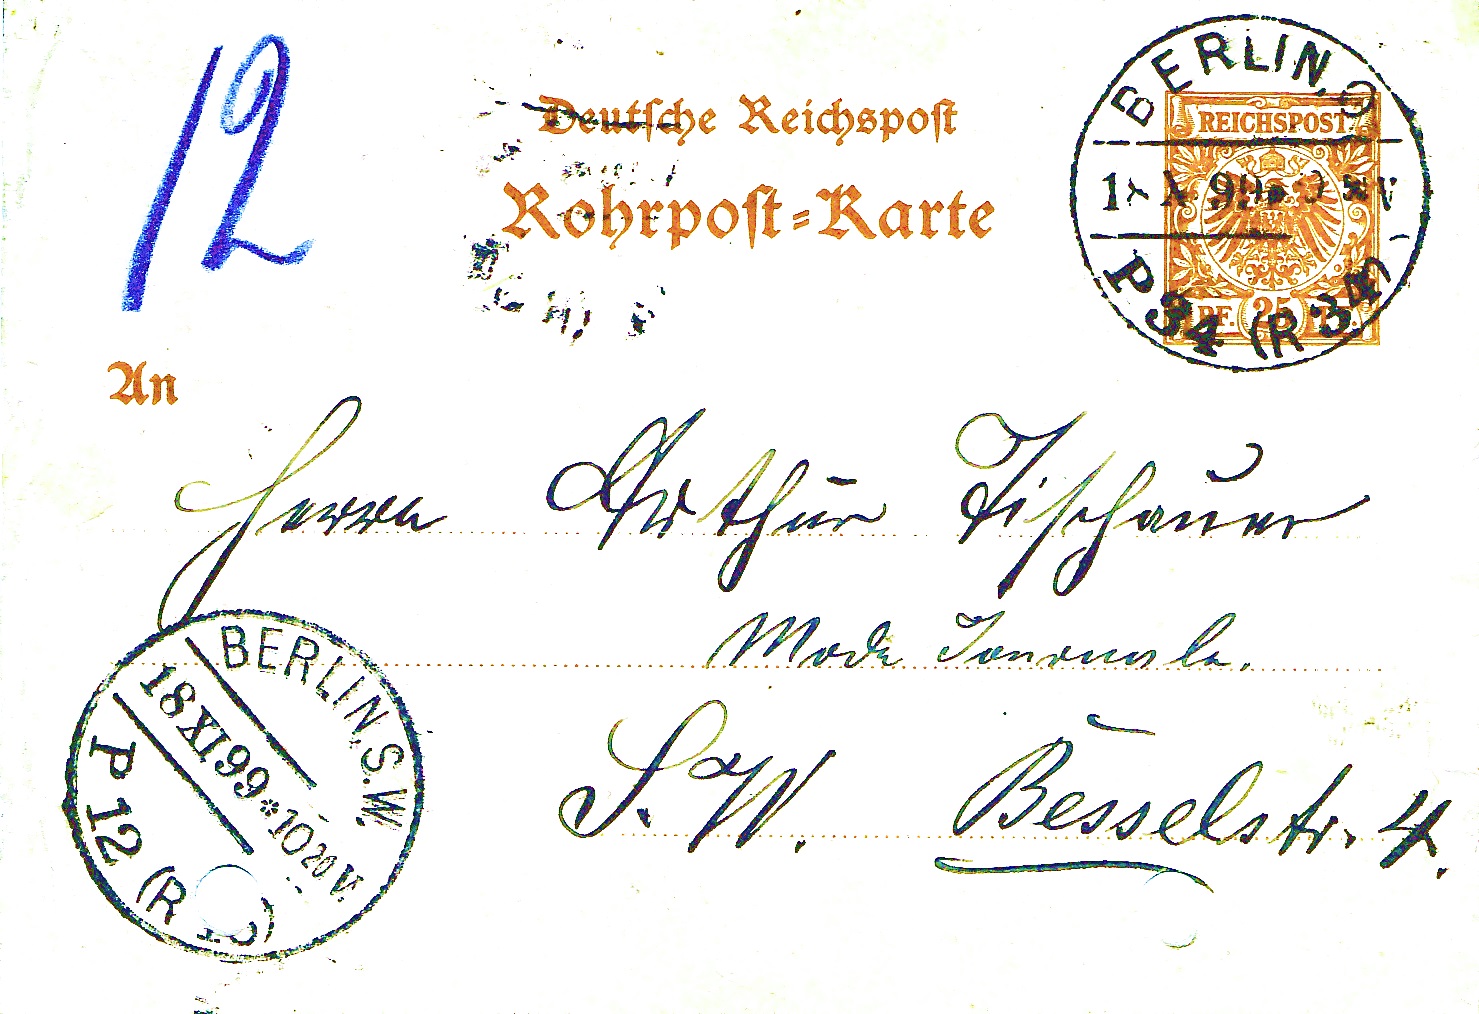 12
Deutsche Reichspost
Rohrpost-Karte
BERLIN, O
REICHSPOST
P 34 (R 34)
PF. 25 PF.
An
Herrn Arthur Tischauer
Mode Journale.
S.W. Besselstr. 4.
BERLIN.S.W.
18 XI 99 * 10 20 V.
P 12 (R 12)